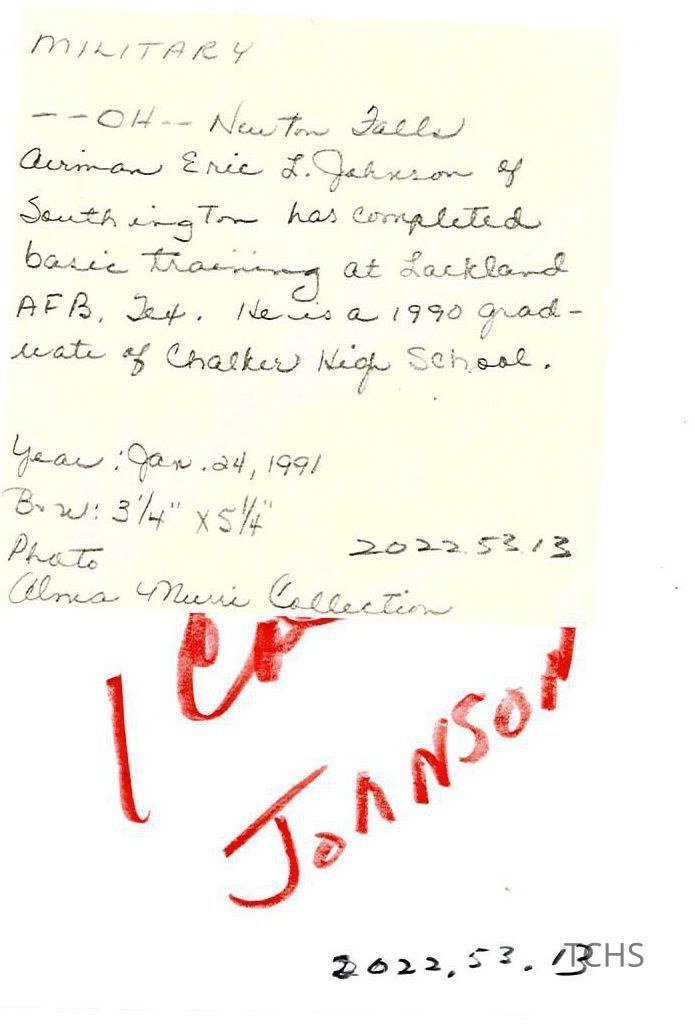 MILITARY
--OH-- Newton Falls
Airman Eric L. Johnson of
Southington has completed
basic training at Lackland
AFB, Tex. He is a 1990 grad-
uate of Chalker High School.
Year: Jan. 24, 1991
B+W: 3 1/4" x 5 1/4"
Photo
2022.53.13
Alma Murri Collection
1 C
JOHNSON
2022.53.13
TCHS